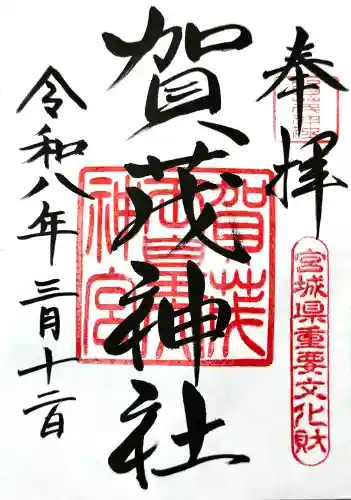 奉拝
宮城県重要文化財
賀茂神社
令和八年三月十二日